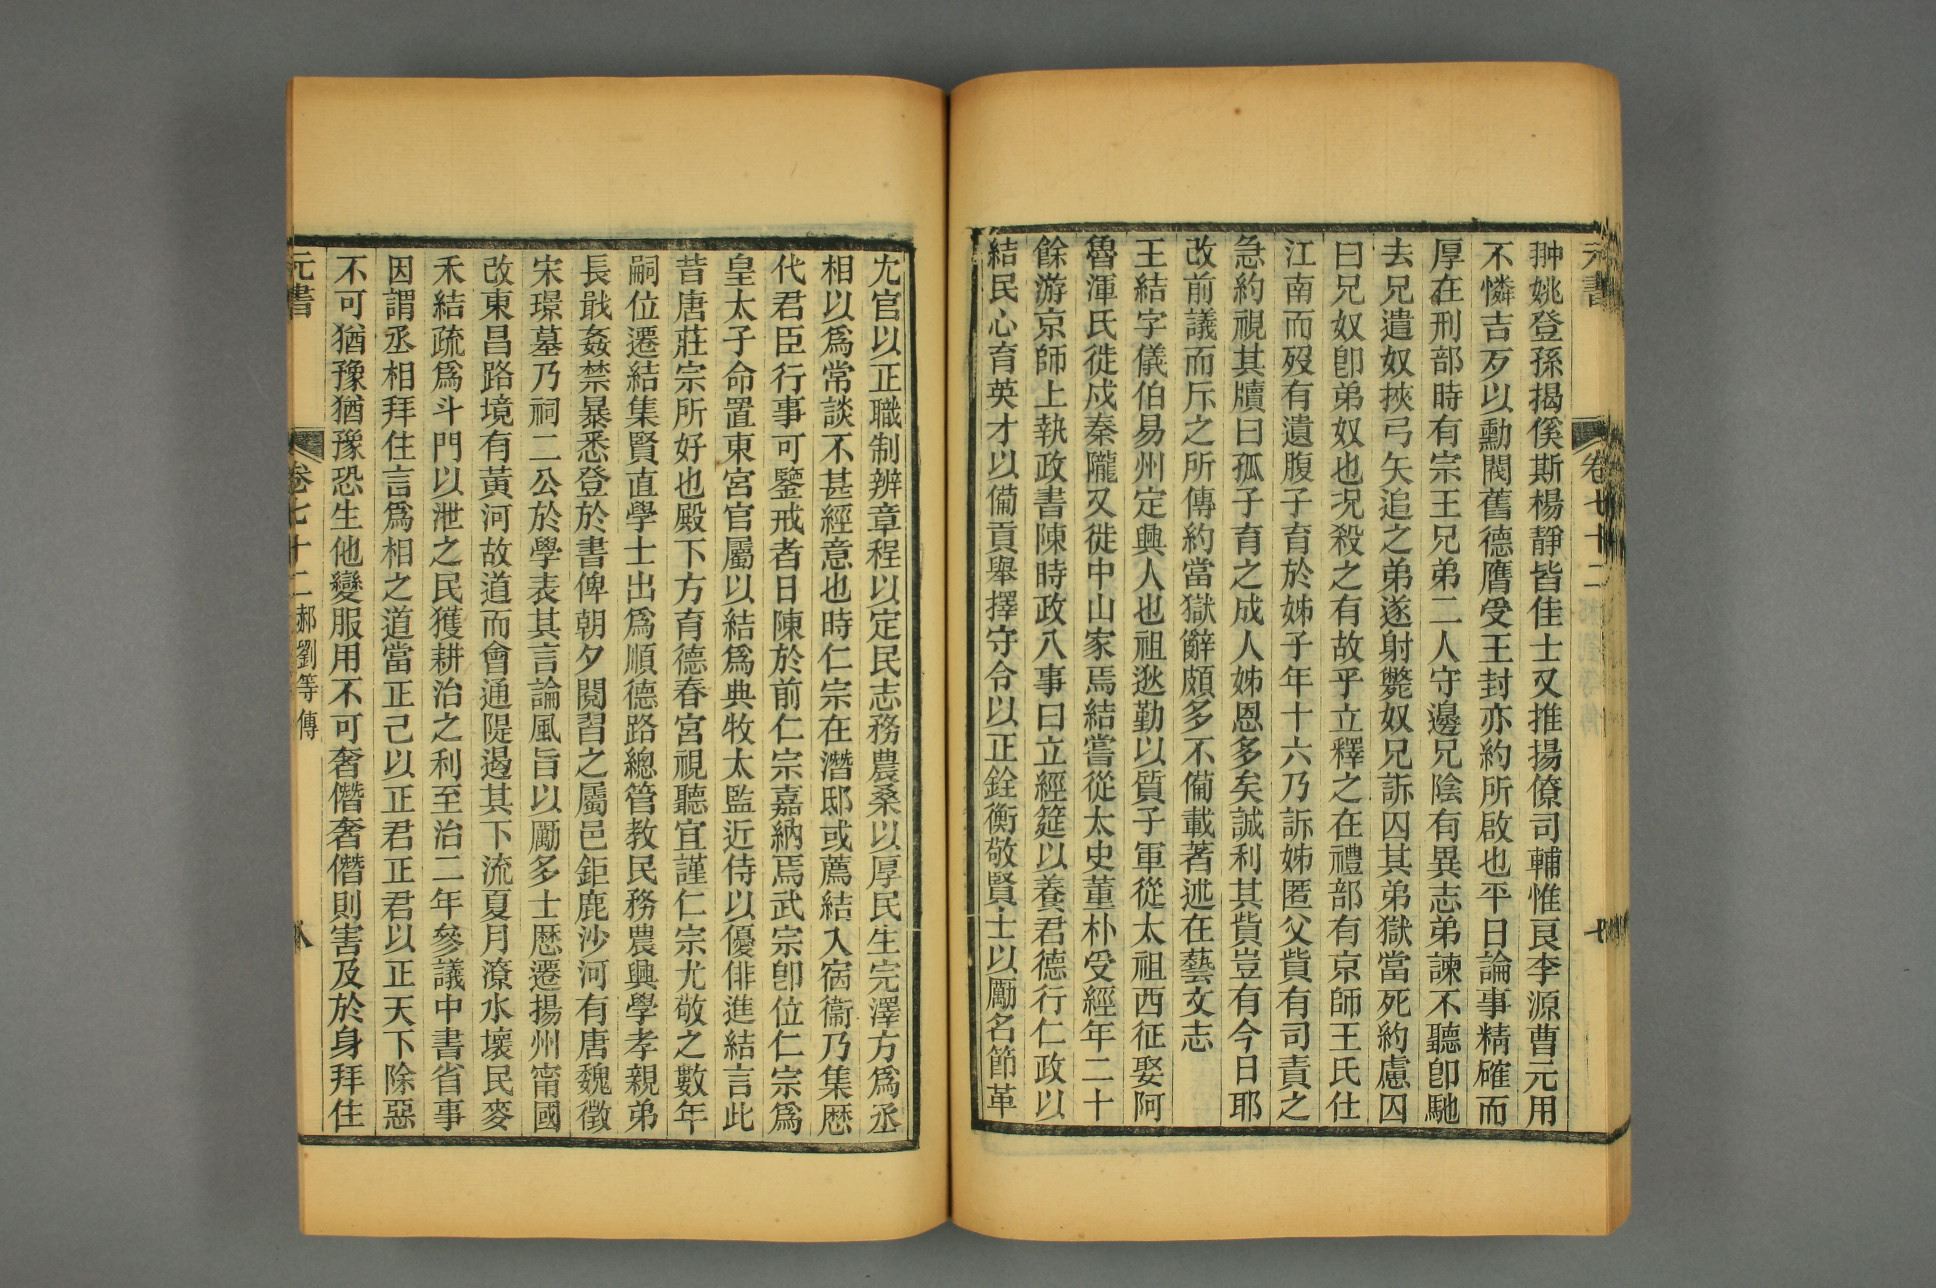 元書
卷七十二
七
翀姚登孫揭傒斯楊靜皆佳士又推揚僚司輔惟良李源曹元用
不憐吉歹以勳閥舊德膺受王封亦約所啟也平日論事精確而
厚在刑部時有宗王兄弟二人守邊兄陰有異志弟諫不聽卽馳
去兄遣奴挾弓矢追之弟遂射斃奴兄訴囚其弟獄當死約慮囚
曰兄奴卽弟奴也况殺之有故乎立釋之在禮部有京師王氏仕
江南而歿有遺腹子育於姊子年十六乃訴姊匿父貲有司責之
急約視其牘曰孤子育之成人姊恩多矣誠利其貲豈有今日耶
改前議而斥之所傳約當獄辭頗多不備載著述在藝文志
王結字儀伯易州定興人也祖逖勤以質子軍從太祖西征娶阿
魯渾氏徙戍秦隴又徙中山家焉結嘗從太史董朴受經年二十
餘游京師上執政書陳時政八事曰立經筵以養君德行仁政以
結民心育英才以備貢舉擇守令以正銓衡敬賢士以勵名節革
冗官以正職制辨章程以定民志務農桑以厚民生完澤方爲丞
相以爲常談不甚經意也時仁宗在潛邸或薦結入宿衞乃集歴
代君臣行事可鑒戒者日陳於前仁宗嘉納焉武宗卽位仁宗爲
皇太子命置東宮官屬以結爲典牧太監近侍以優俳進結言此
昔唐莊宗所好也殿下方育德春宮視聽宜謹仁宗尤敬之數年
嗣位遷結集賢直學士出爲順德路總管教民務農興學孝親弟
長戢姦禁暴悉登於書俾朝夕閱習之屬邑鉅鹿沙河有唐魏徵
宋璟墓乃祠二公於學表其言論風旨以勵多士歴遷揚州甯國
改東昌路境有黃河故道而會通隄遏其下流夏月潦水壞民麥
禾結疏爲斗門以泄之民獲耕治之利至治二年參議中書省事
因謂丞相拜住言爲相之道當正己以正君正君以正天下除惡
不可猶豫猶豫恐生他變服用不可奢僭奢僭則害及於身拜住
元書
卷七十二郝劉等傳
八